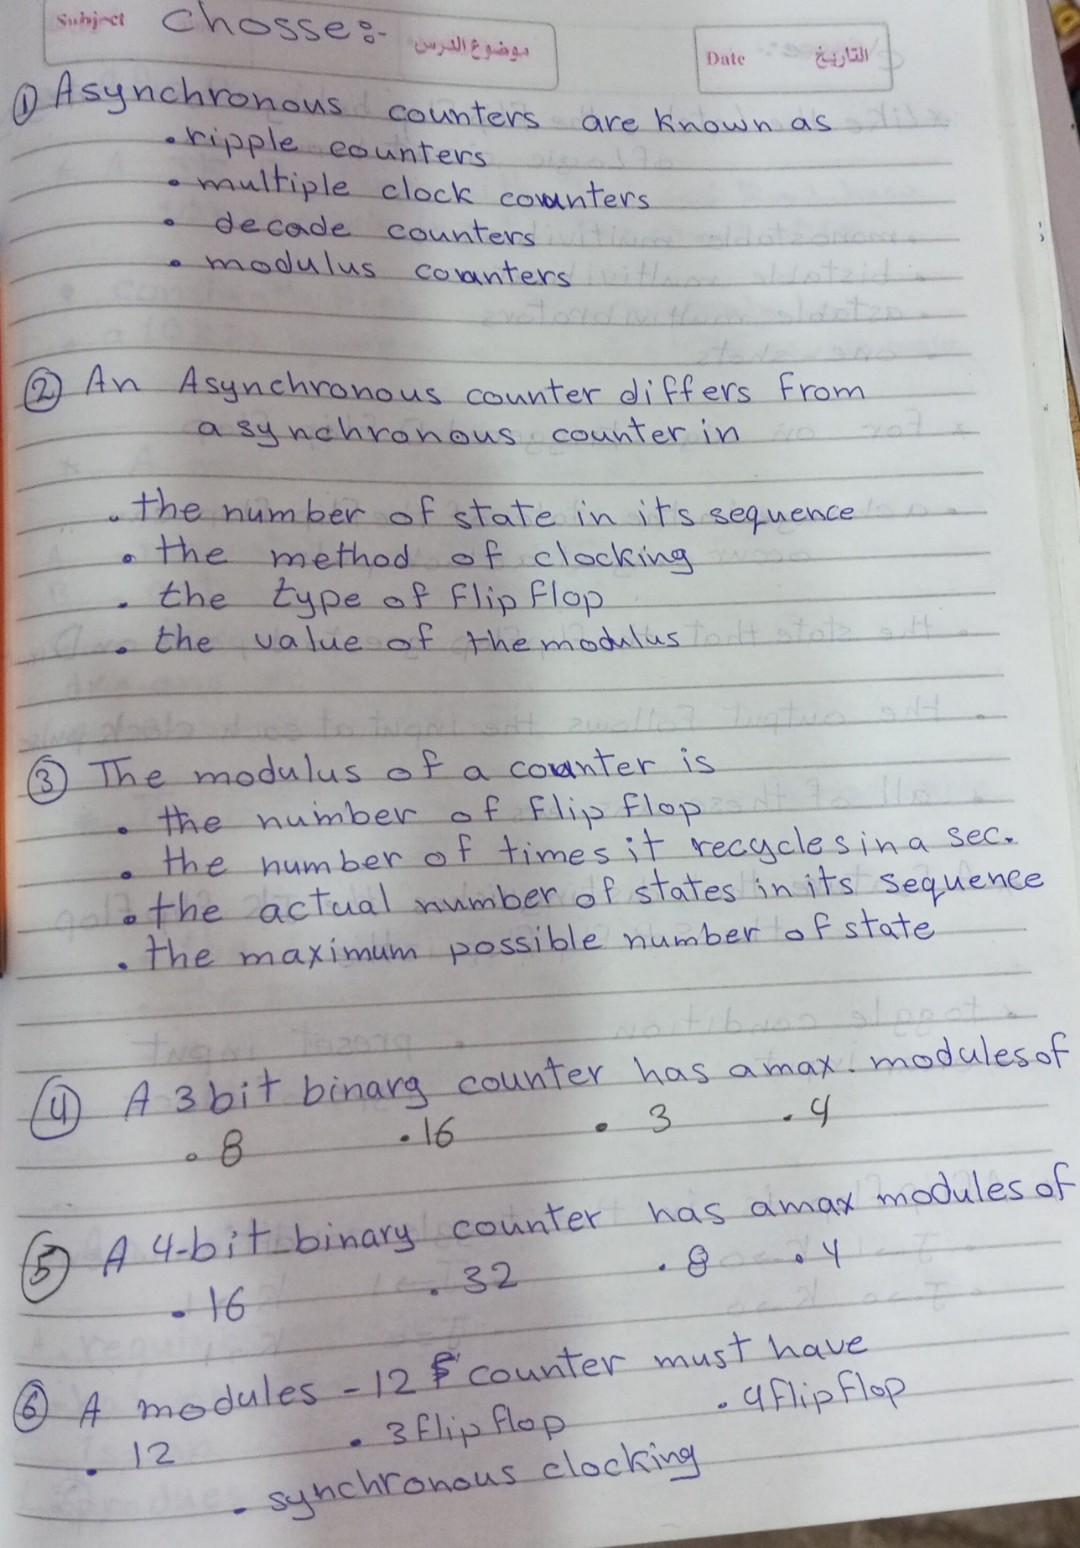 Subject Chosse:- موضوع الدرس
Date التاريخ
① Asynchronous counters are known as
• ripple counters
• multiple clock counters
• decade counters
• modulus counters
② An Asynchronous counter differs from
a synchronous counter in
• the number of state in it's sequence
• the method of clocking
• the type of flip flop
• the value of the modulus
③ The modulus of a counter is
• the number of flip flop
• the number of times it recycles in a sec.
• the actual number of states in its sequence
• the maximum possible number of state
④ A 3 bit binary counter has a max. modules of
• 8 • 16 • 3 • 4
⑤ A 4-bit binary counter has a max modules of
• 16 • 32 • 8 • 4
⑥ A modules - 12 counter must have
• 12 • 3 flip flop • 4 flip flop
• synchronous clocking